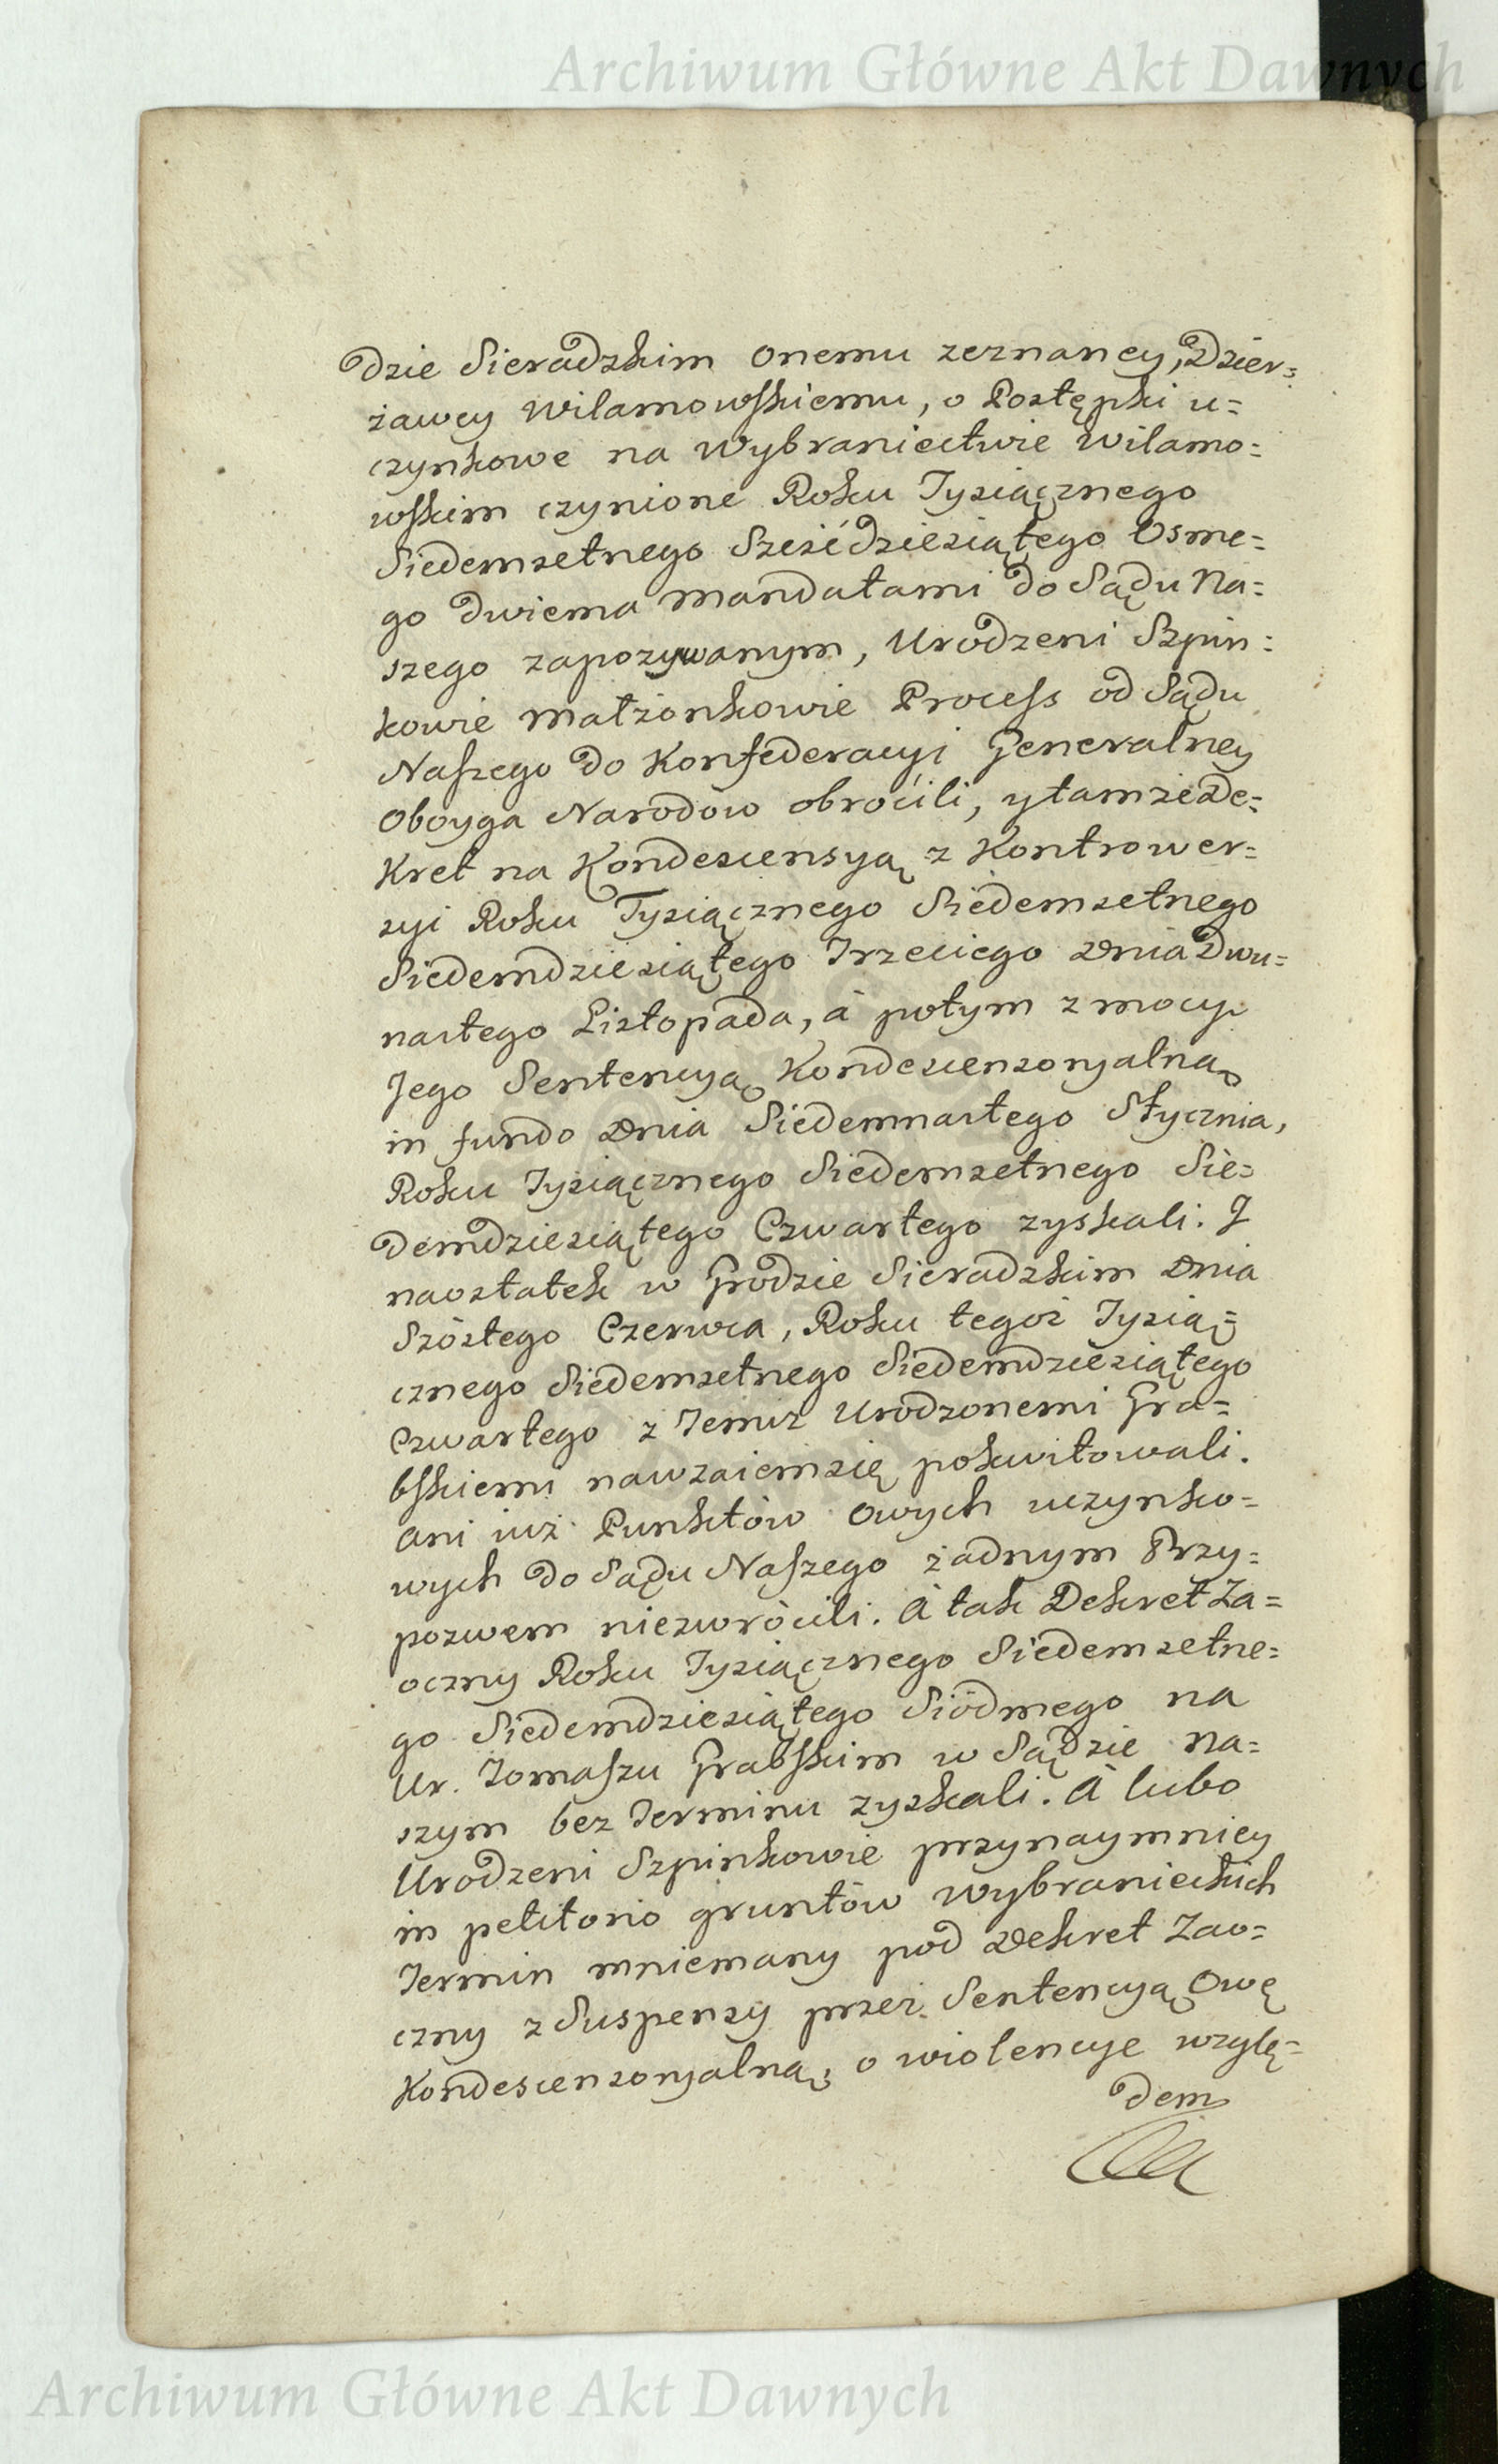 Archiwum Główne Akt Dawnych
dzie Sieradzkim onemu zeznaney, Dzier=
żawcy Wilamowskiemu, o Postępki u=
czynkowe na Wybraniectwie Wilamo=
wskim czynione Roku Tysiącznego
Siedemsetnego Sześćdziesiątego Osme=
go dwiema Mandatami do Sądu Na=
szego zapozywanym, Urodzeni Szpin=
kowie Małżonkowie Process od Sądu
Naszego do Konfederacyi Generalney
Oboyga Narodow obroćili, y tamże De=
kret na Kondescensyą z Kontrower=
syi Roku Tysiącznego Siedemsetnego
Siedemdziesiątego Trzeciego Dnia Dwu=
nastego Listopada, á potym z mocy
Jego Sentencyą Kondescensoryalną
in fundo Dnia Siedemnastego Stycznia,
Roku Tysiącznego Siedemsetnego Sie=
demdziesiątego Czwartego zyskali. J
naostatek w Grodzie Sieradzkim Dnia
Szóstego Czerwca, Roku tegoż Tysią=
cznego Siedemsetnego Siedemdziesiątego
Czwartego z Temiż Urodzonemi Gra=
bskiemi nawzaiem się pokwitowali.
ani iuż Punktów owych uczynko=
wych do Sądu Naszego żadnym Przy=
pozwem niezwrócili. A tak Dekret Za=
oczny Roku Tysiącznego Siedemsetne=
go Siedemdziesiątego Siódmego na
Ur. Tomaszu Grabskim w Sądzie na=
szym bez Terminu zyskali. A lubo
Urodzeni Szpinkowie przynaymniey
in petitorio gruntów Wybranieckich
Termin mniemany pod Dekret Zao=
czny z Suspensy przez Sentencyą Owę
Kondescensoryalną, o wiolencye wzglę=
dem
Archiwum Główne Akt Dawnych